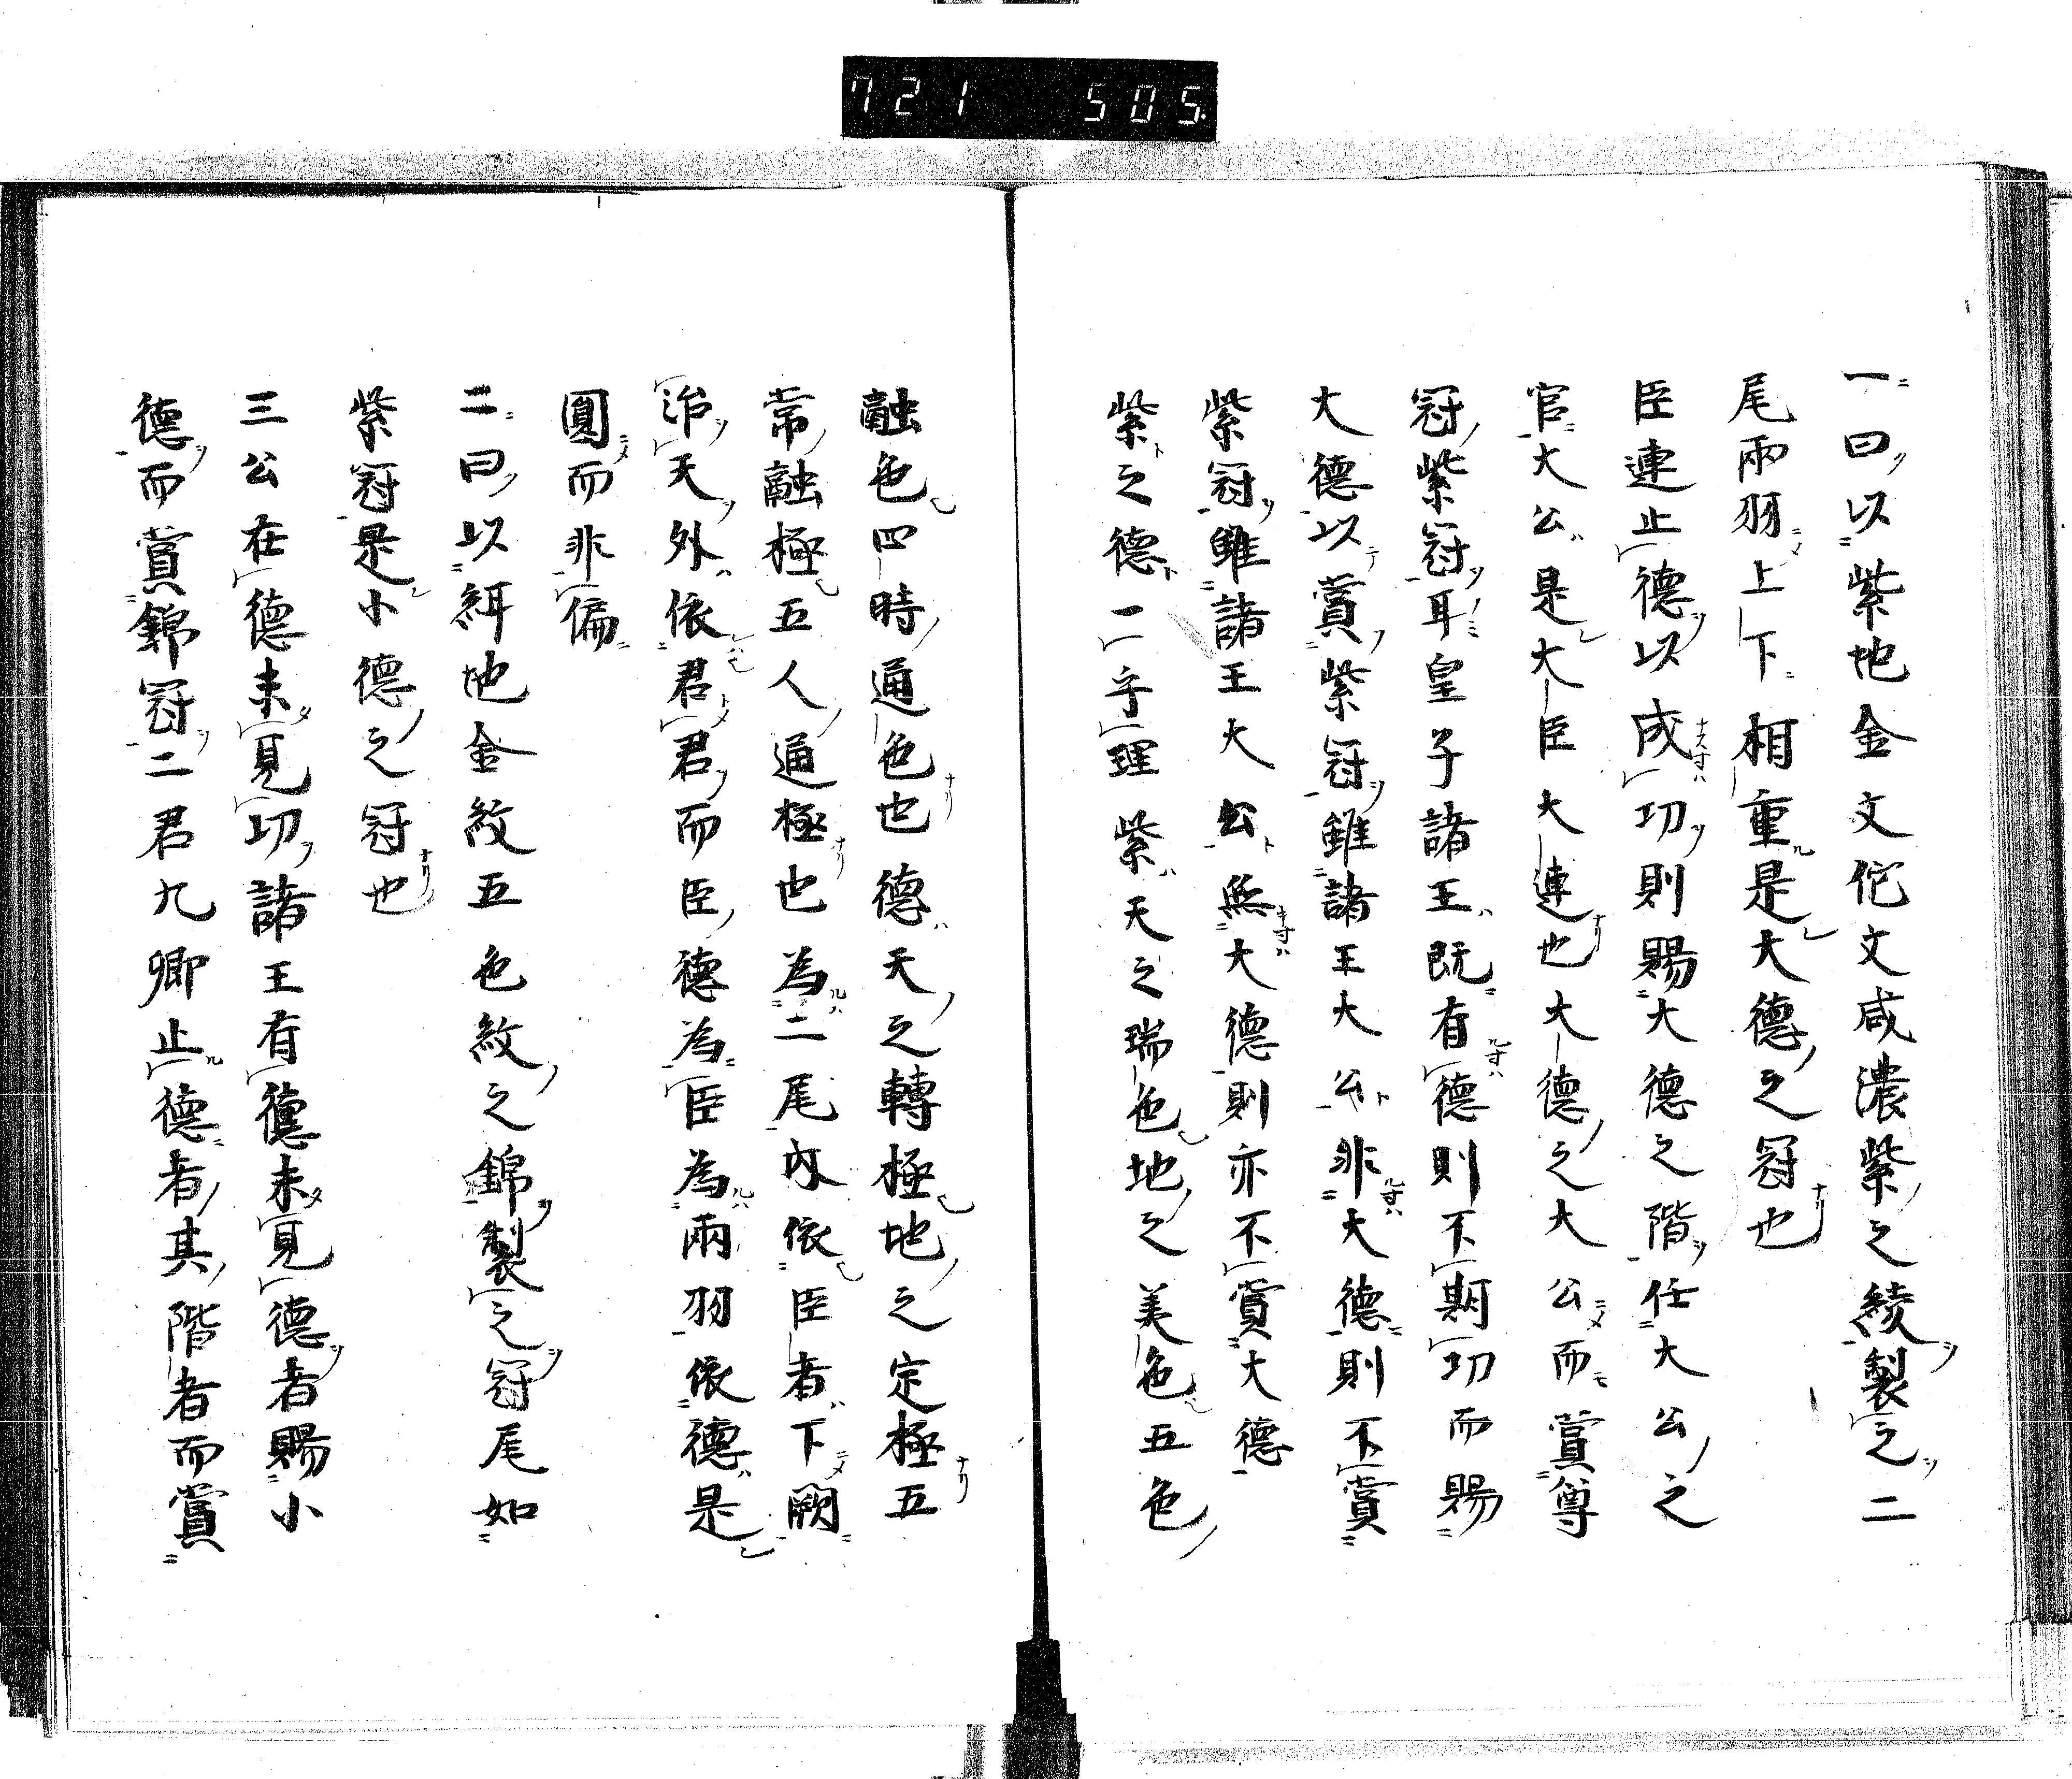 721 505.
一曰以紫地金文佗文咸濃紫之綾製之二
尾兩羽上下相重是大德之冠也
臣連止德以成功則賜大德之階任大公之
官大公是大臣大連也大德之大公而賞尊
冠紫冠耳皇子諸王既有德則不期功而賜
大德以賞紫冠雖諸王大公非大德則不賞
紫冠雖諸王大公無大德則亦不賞大德
紫之德一乎理紫天之瑞色地之美色五色
融色四時通色也德天之轉極地之定極五
常融極五人通極也為二尾内依臣者下厥
治天外依君君而臣德為臣為兩羽依德是
圓而非偏
二曰以緷地金紋五色紋之錦製之冠尾如
紫冠是小德之冠也
三公在德未見功諸王有德未見德者賜小
德而賞錦冠二君九卿止德者其階者而賞